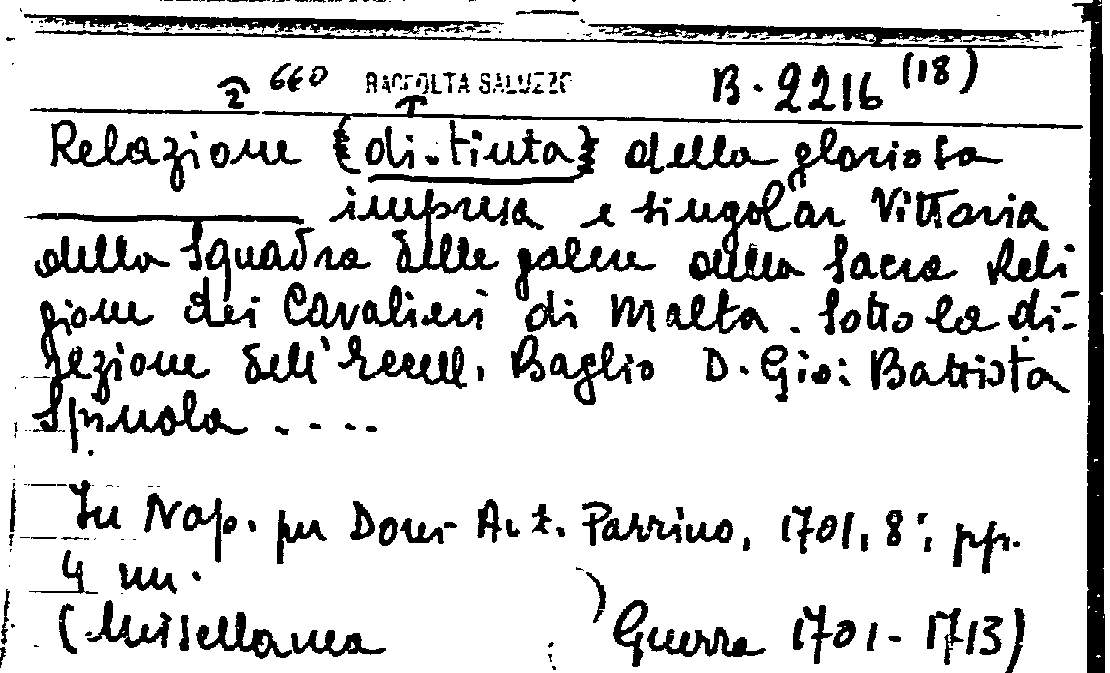 2 660 RACCOLTA SALUZZO B. 2216 (18)
Relazione (distinta) della gloriosa
impresa e singolar Vittoria
della Squadra delle galere della Sacra Reli
gione dei Cavalieri di Malta. Sotto la di-
rezione dell'Eccell. Baglio D. Gio: Battista
Spinola ....
In Nap. per Domen. Ant. Parrino, 1701, 8°, pp.
4 nn.
(Miscellanea Guerra 1701-1713)